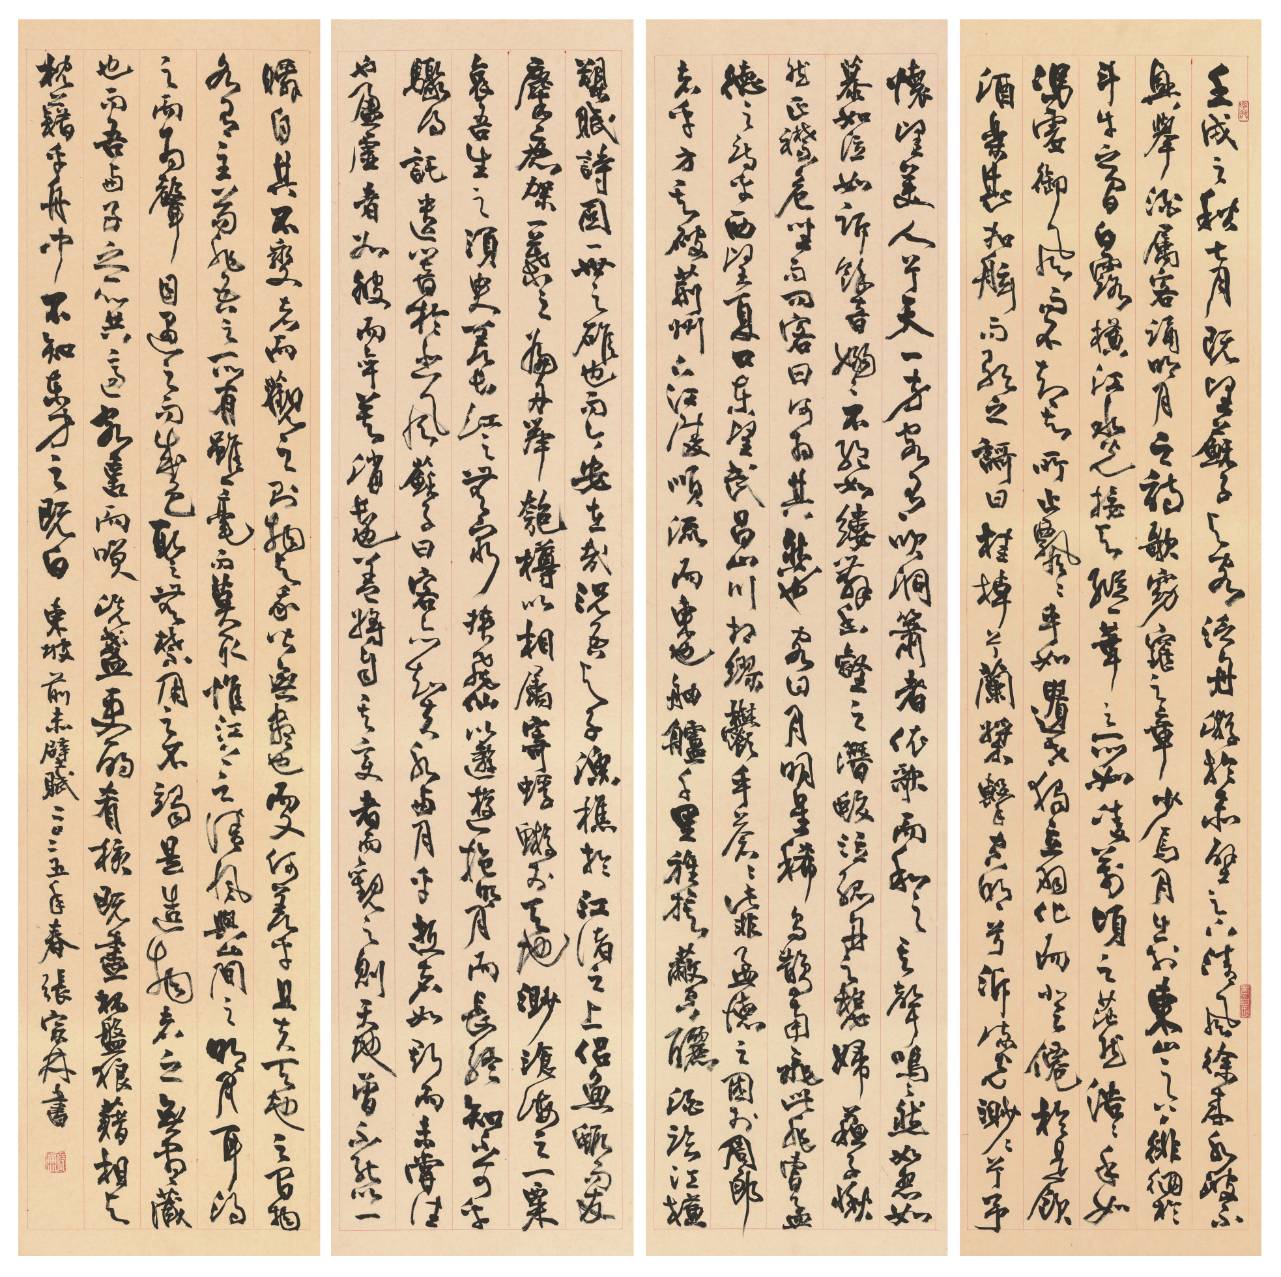 壬戌之秋七月既望蘇子與客泛舟遊於赤壁之下清風徐來水波不
興舉酒屬客誦明月之詩歌窈窕之章少焉月出於東山之上徘徊於
斗牛之間白露橫江水光接天縱一葦之所如凌萬頃之茫然浩々乎如
馮虛御風而不知其所止飄々乎如遺世獨立羽化而登僊於是飲
酒樂甚扣舷而歌之謌曰桂棹兮蘭槳擊空明兮泝流光渺々兮予
懷望美人兮天一方客有吹洞簫者依歌而和之其聲嗚々然如怨如
慕如泣如訴餘音嫋々不絕如縷舞幽壑之潛蛟泣孤舟之嫠婦蘇子愀
然正襟危坐而問客曰何為其然也客曰月明星稀烏鵲南飛此非曹孟
德之詩乎西望夏口東望武昌山川相繆鬱乎蒼々此非孟德之困於周郎
者乎方其破荊州下江陵順流而東也舳艫千里旌旗蔽空釃酒臨江橫
槊賦詩固一世之雄也而今安在哉況吾與子漁樵於江渚之上侶魚蝦而友
麋鹿駕一葉之扁舟舉匏樽以相屬寄蜉蝣於天地渺滄海之一粟
哀吾生之須臾羨長江之無窮挾飛仙以遨遊抱明月而長終知不可乎
驟得託遺響於悲風蘇子曰客亦知夫水與月乎逝者如斯而未嘗往
也盈虛者如彼而卒莫消長也蓋將自其變者而觀之則天地曾不能以一
瞬自其不變者而觀之則物與我皆無盡也而又何羨乎且夫天地之間物
各有主苟非吾之所有雖一毫而莫取惟江上之清風與山間之明月耳得
之而為聲目遇之而成色取之無禁用之不竭是造物者之無盡藏
也而吾與子之所共適客喜而笑洗盞更酌肴核既盡杯盤狼藉相與
枕藉乎舟中不知東方之既白 東坡前赤壁賦二〇二五年春張家書